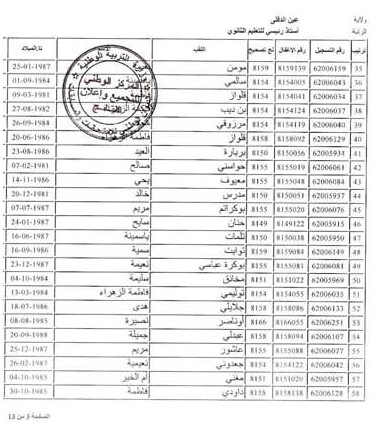 ولاية عين الدفلى
الرتبة أستاذ رئيسي للتعليم الثانوي
ترتيب رقم التسجيل رقم الإغفال لج تصحيح اللقب تا.الميلاد
35 62006159 8159139 8159 مومن 25-01-1987
36 62006043 8154005 8154 سالمي 01-09-1984
37 62006041 8154043 8154 قلواز 09-03-1981
38 62006037 8154124 8154 بن ديب 27-08-1982
39 62006040 8154119 8154 مرزوقي 26-09-1984
40 62006129 8158092 8158 قلواز فاطمة الزهراء 20-06-1986
41 62005934 8150056 8150 بربارة العيد 23-08-1986
42 62006061 8155019 8155 حواسني صالح 07-02-1981
43 62006084 8155048 8155 معيوف يحي 14-11-1986
44 62005937 8150051 8150 مدرس خالد 20-12-1981
45 62006076 8155020 8155 بوكراتم مريم 07-07-1987
46 62005915 8149122 8149 حنان سايح 24-01-1987
47 62005950 8150038 8150 تلمات ياسمينة 16-06-1987
48 62006149 8159084 8159 توايت سمية 16-09-1986
49 62006081 8155081 8155 بوكرة عباسي نعيمة 23-12-1987
50 62005969 8151022 8151 مخانق سليمة 04-10-1984
51 62006035 8154055 8154 توليمي فاطمة الزهراء 13-03-1984
52 62006133 8158086 8158 جلايلي هدى 18-07-1986
53 62006251 8166055 8166 أوناصر نصيرة 08-08-1985
54 62006107 8158094 8158 عبدلي جميلة 20-09-1988
55 62006077 8155088 8155 عاشور مريم 25-12-1987
56 62006042 8154122 8154 جعدوني نعيمية 26-02-1987
57 62005957 8151020 8151 معني أم الخير 04-04-1985
58 62006128 8158138 8158 داودي فاطمة 30-10-1985
الصفحة 3 من 13